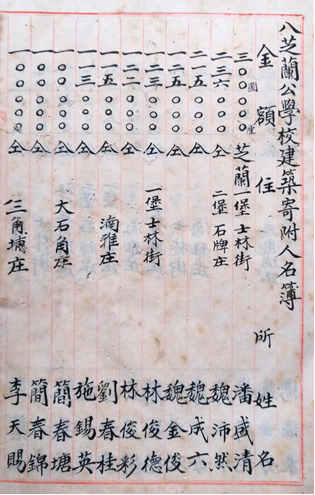 八芝蘭公學校建築寄附人名簿
金額 住所 姓名
三〇〇圓〇〇〇厘 芝蘭一堡士林街 潘盛清
二三六〇〇〇 仝 二堡石牌庄 魏沛然
二一五〇〇〇 仝 魏成六
一二五〇〇〇 仝 魏金俊
一二三〇〇〇 仝 一堡士林街 林俊德
一二二〇〇〇 仝 林俊彩
一一五〇〇〇 仝 湳雅庄 劉春桂
一一三〇〇〇 仝 施錫英
一〇〇〇〇〇 仝 大石角庄 簡春塘
一〇〇〇〇〇 仝 簡春錦
一〇〇〇〇〇 仝 三角埔庄 李天賜